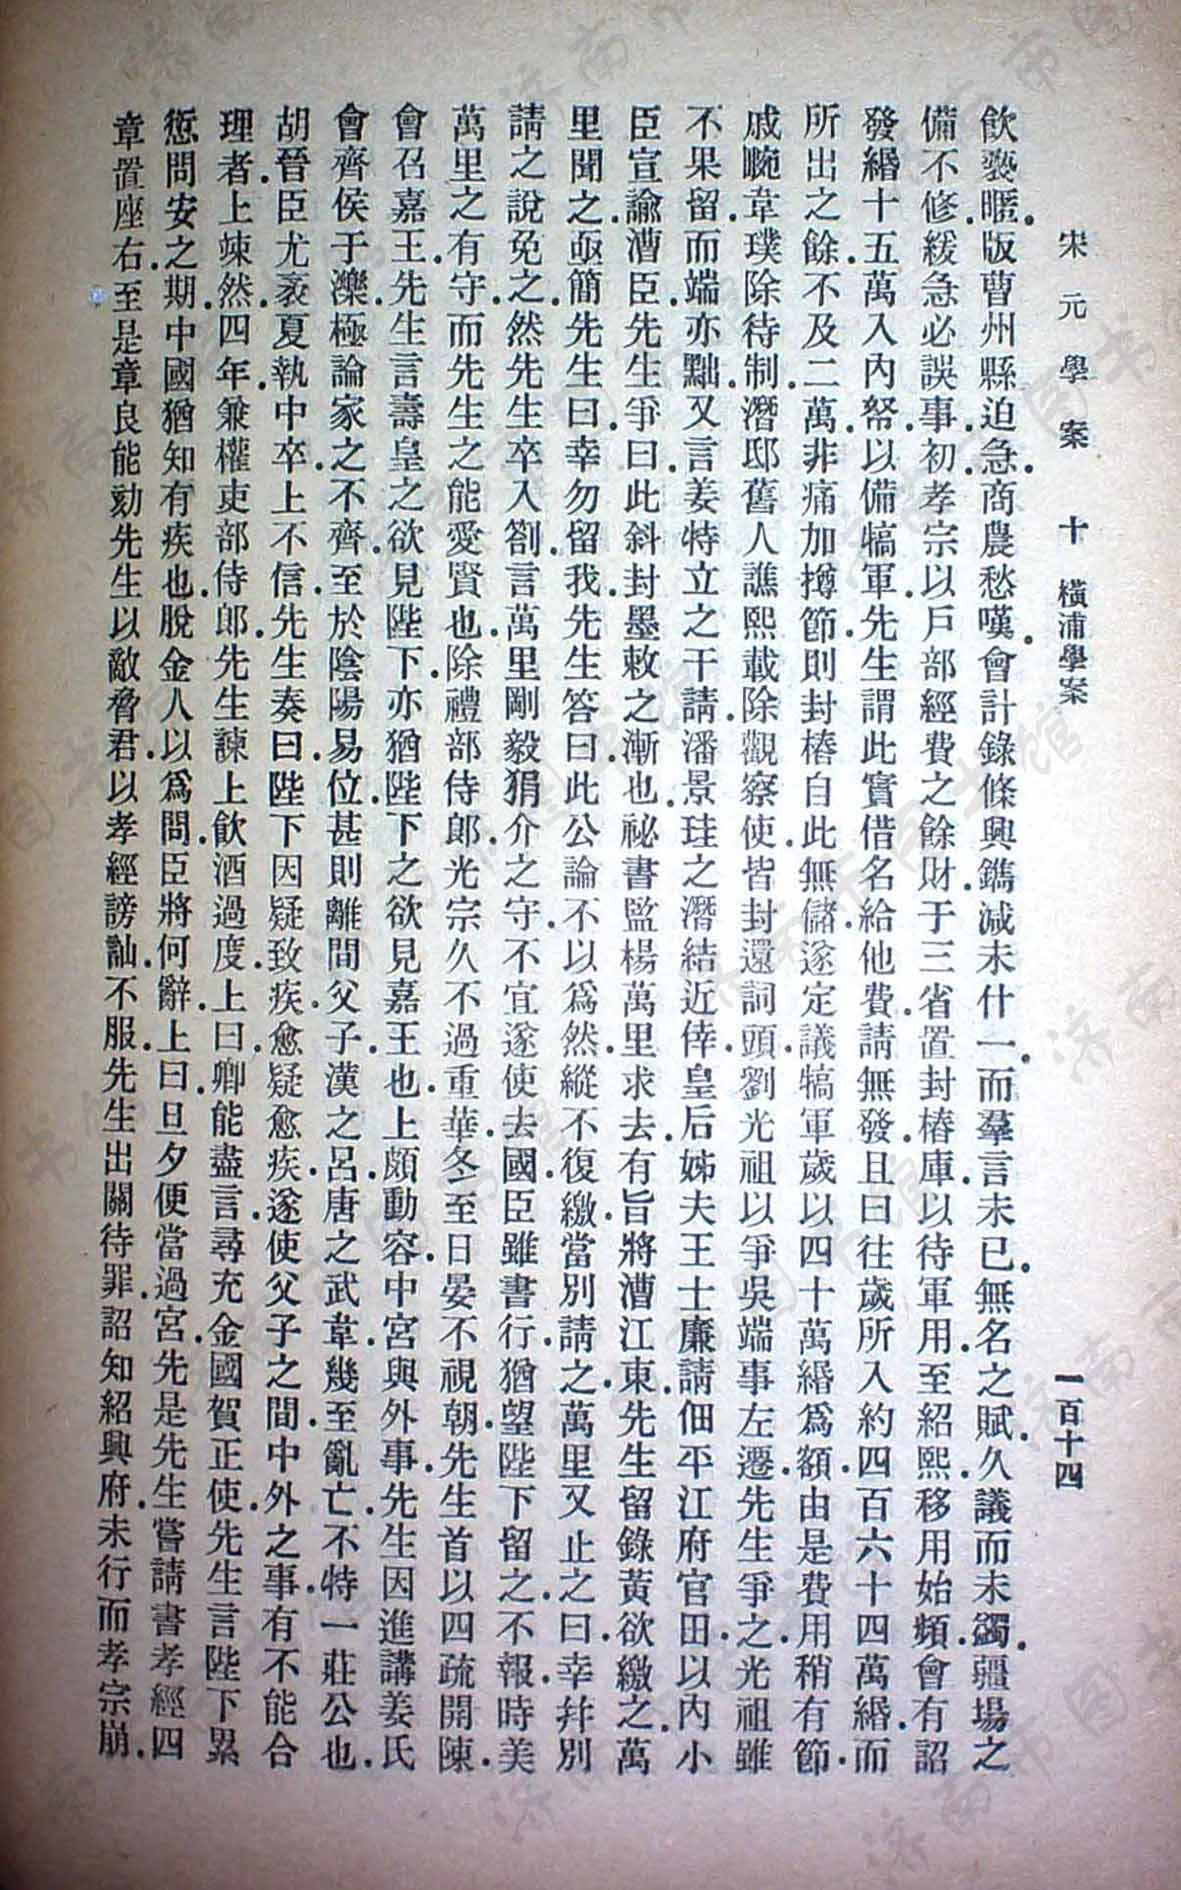 宋元學案 十 橫浦學案 一百十四
飲褻暱．版曹州縣迫急．商農愁嘆．會計錄條興．鐫減未什一．而羣言未已．無名之賦．久議而未蠲．疆場之
備不修．緩急必誤事．初．孝宗以戶部經費之餘財．于三省置封樁庫．以待軍用．至紹熙．移用始頻．會有詔
發緡十五萬入內帑．以備犒軍．先生謂此實借名給他費．請無發．且曰往歲所入約四百六十四萬緡．而
所出之餘．不及二萬．非痛加撙節．則封樁自此無儲．遂定議犒軍歲以四十萬緡爲額．由是費用稍有節．
戚畹韋璞除待制．潛邸舊人譙熙載除觀察使．皆封還詞頭．劉光祖以爭吳端事左遷．先生爭之．光祖雖
不果留．而端亦黜．又言姜特立之干請．潘景珪之潛結近倖．皇后姊夫王士廉請佃平江府官田．以內小
臣宣諭漕臣．先生爭曰．此斜封墨敕之漸也．祕書監楊萬里求去．有旨將漕江東．先生留錄黃欲繳之．萬
里聞之．亟簡先生曰．幸勿留我．先生答曰．此公論不以爲然．縱不復繳．當別請之．萬里又止之曰．幸幷別
請之說免之．然先生卒入劄．言萬里剛毅狷介之守．不宜遂使去國．臣雖書行．猶望陛下留之．不報．時美
萬里之有守．而先生之能愛賢也．除禮部侍郎．光宗久不過重華．冬至日晏不視朝．先生首以四疏開陳．
會召嘉王．先生言壽皇之欲見陛下．亦猶陛下之欲見嘉王也．上頗動容．中宮與外事．先生因進講姜氏
會齊侯于濼．極論家之不齊．至於陰陽易位．甚則離間父子．漢之呂．唐之武韋．幾至亂亡．不特一莊公也．
胡晉臣尤袤夏執中卒．上不信．先生奏曰．陛下因疑致疾．愈疑愈疾．遂使父子之間．中外之事．有不能合
理者．上竦然．四年．兼權吏部侍郎．先生諫上飲酒過度．上曰．卿能盡言．尋充金國賀正使．先生言陛下累
愆問安之期．中國猶知有疾也．脫金人以爲問．臣將何辭．上曰．旦夕便當過宮．先是先生嘗請書孝經四
章置座右．至是章良能劾先生以敵脅君．以孝經謗訕．不服．先生出關待罪．詔知紹興府．未行而孝宗崩．